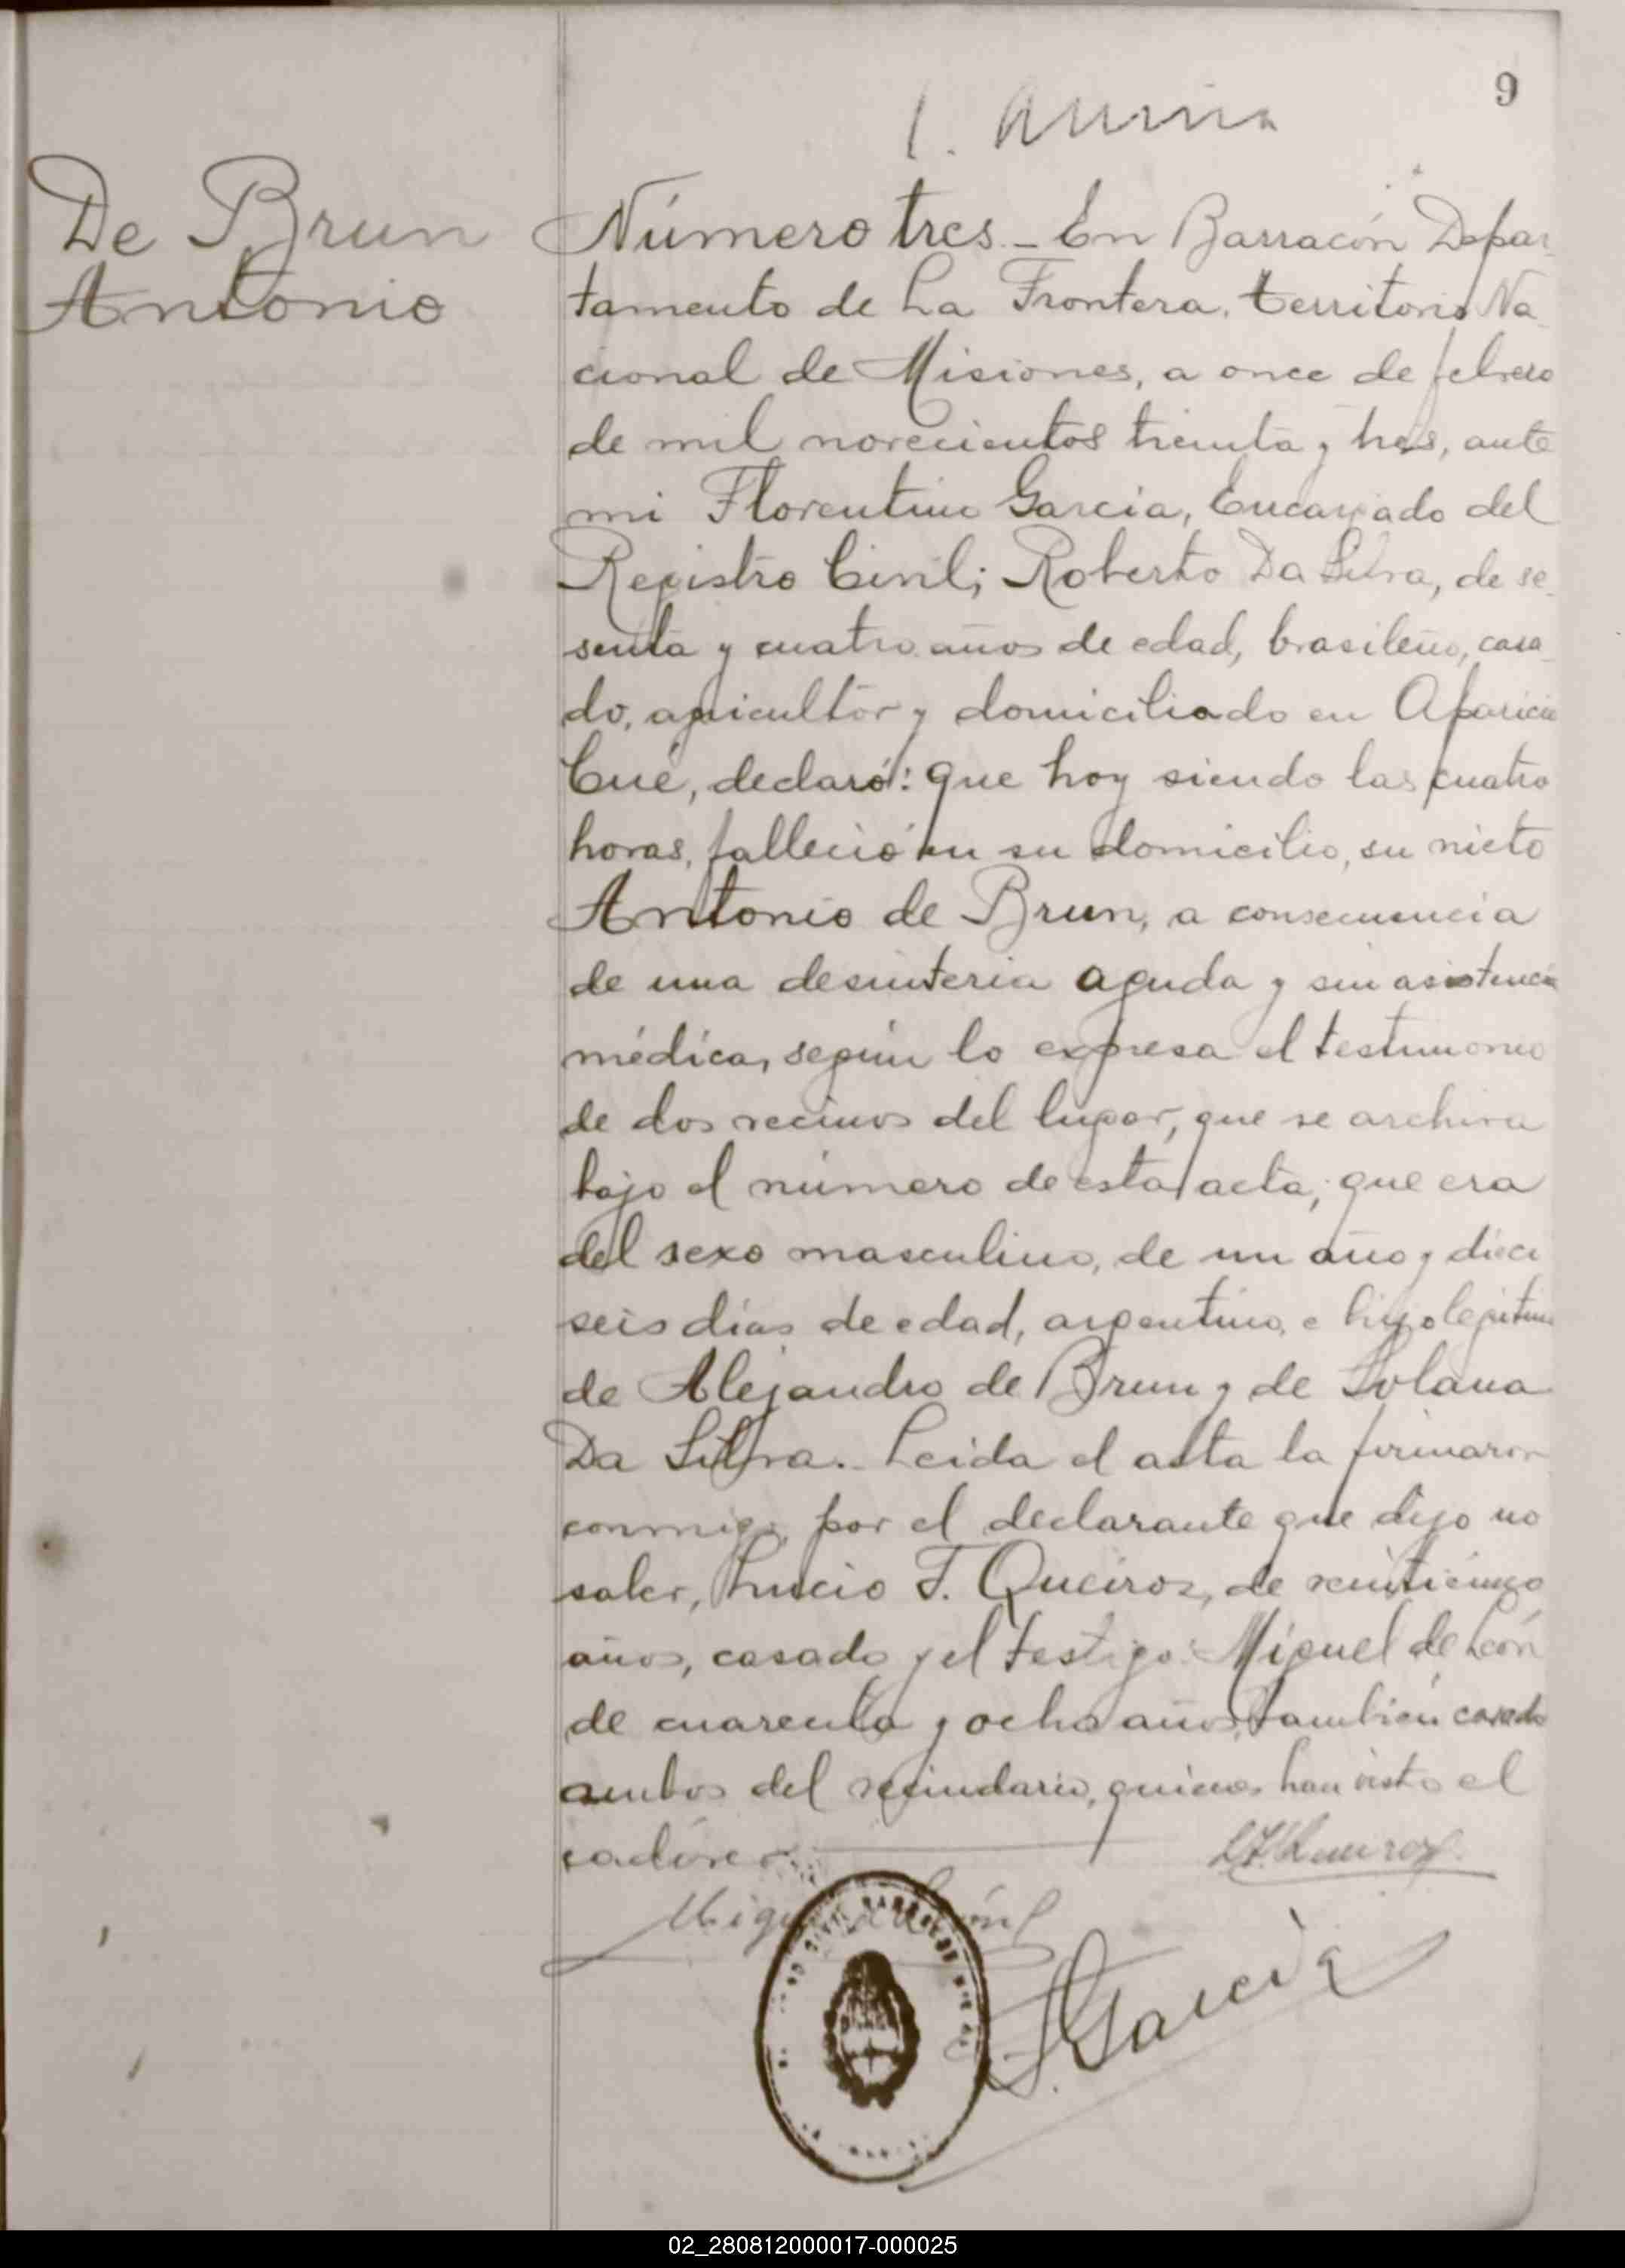 9
De Brun
Antonio
Número tres _ En Barracón Depar
tamento de La Frontera, territorio Na
cional de Misiones, a once de febrero
de mil novecientos treinta y tres, ante
mi Florentino Garcia, Encargado del
Registro Civil; Roberto Da Silva, de se_
senta y cuatro años de edad, brasileño, casa_
do, agricultor y domiciliado en Aparicio
Cué, declaró: que hoy siendo las cuatro
horas, falleció en su domicilio, su nieto
Antonio de Brun, a consecuencia
de una desinteria aguda y sin asistencia
médica, según lo expresa el testimonio
de dos vecinos del lugar, que se archiva
bajo el número de esta acta; que era
del sexo masculino, de un año y dieci
seis dias de edad, argentino, e hijo legitimo
de Alejandro de Brun y de Solana
Da Silva. Leida el acta la firmaron
conmigo, por el declarante que dijo no
saber, Lucio F. Queiroz, de veinticinco
años, casado y el testigo Miguel de León
de cuarenta y ocho años, tambien casado
ambos del vecindario, quienes han visto el
cadáver
L.F. Queiroz
Miguel de León
F. Garcia
02_280812000017-000025